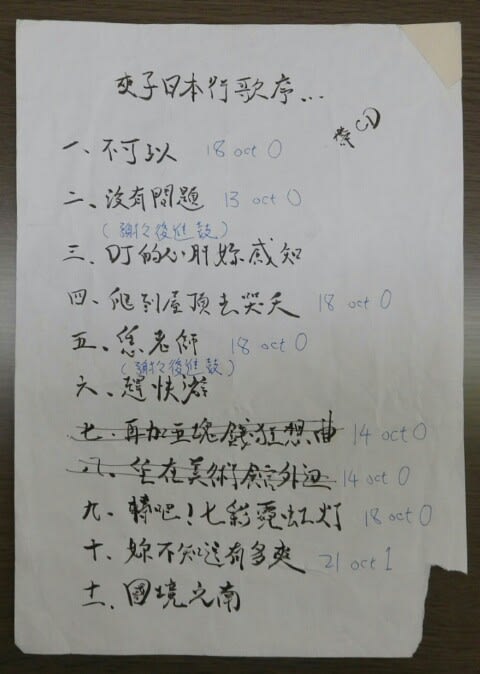 夾子日本行歌序...
CD
一、不可以 18 oct 0
二、沒有問題 13 oct 0
(謝於後進鼓)
三、叮的心肝妳感知
四、爬到屋頂去哭夭 18 oct 0
五、恁老師 18 oct 0
(謝於後進鼓)
六、趕快游
七、再加五塊錢狂想曲 14 oct 0
八、坐在美術館外邊 14 oct 0
九、轉吧!七彩霓虹灯 18 oct 0
十、妳不知道有多爽 21 oct 1
十一、國境之南